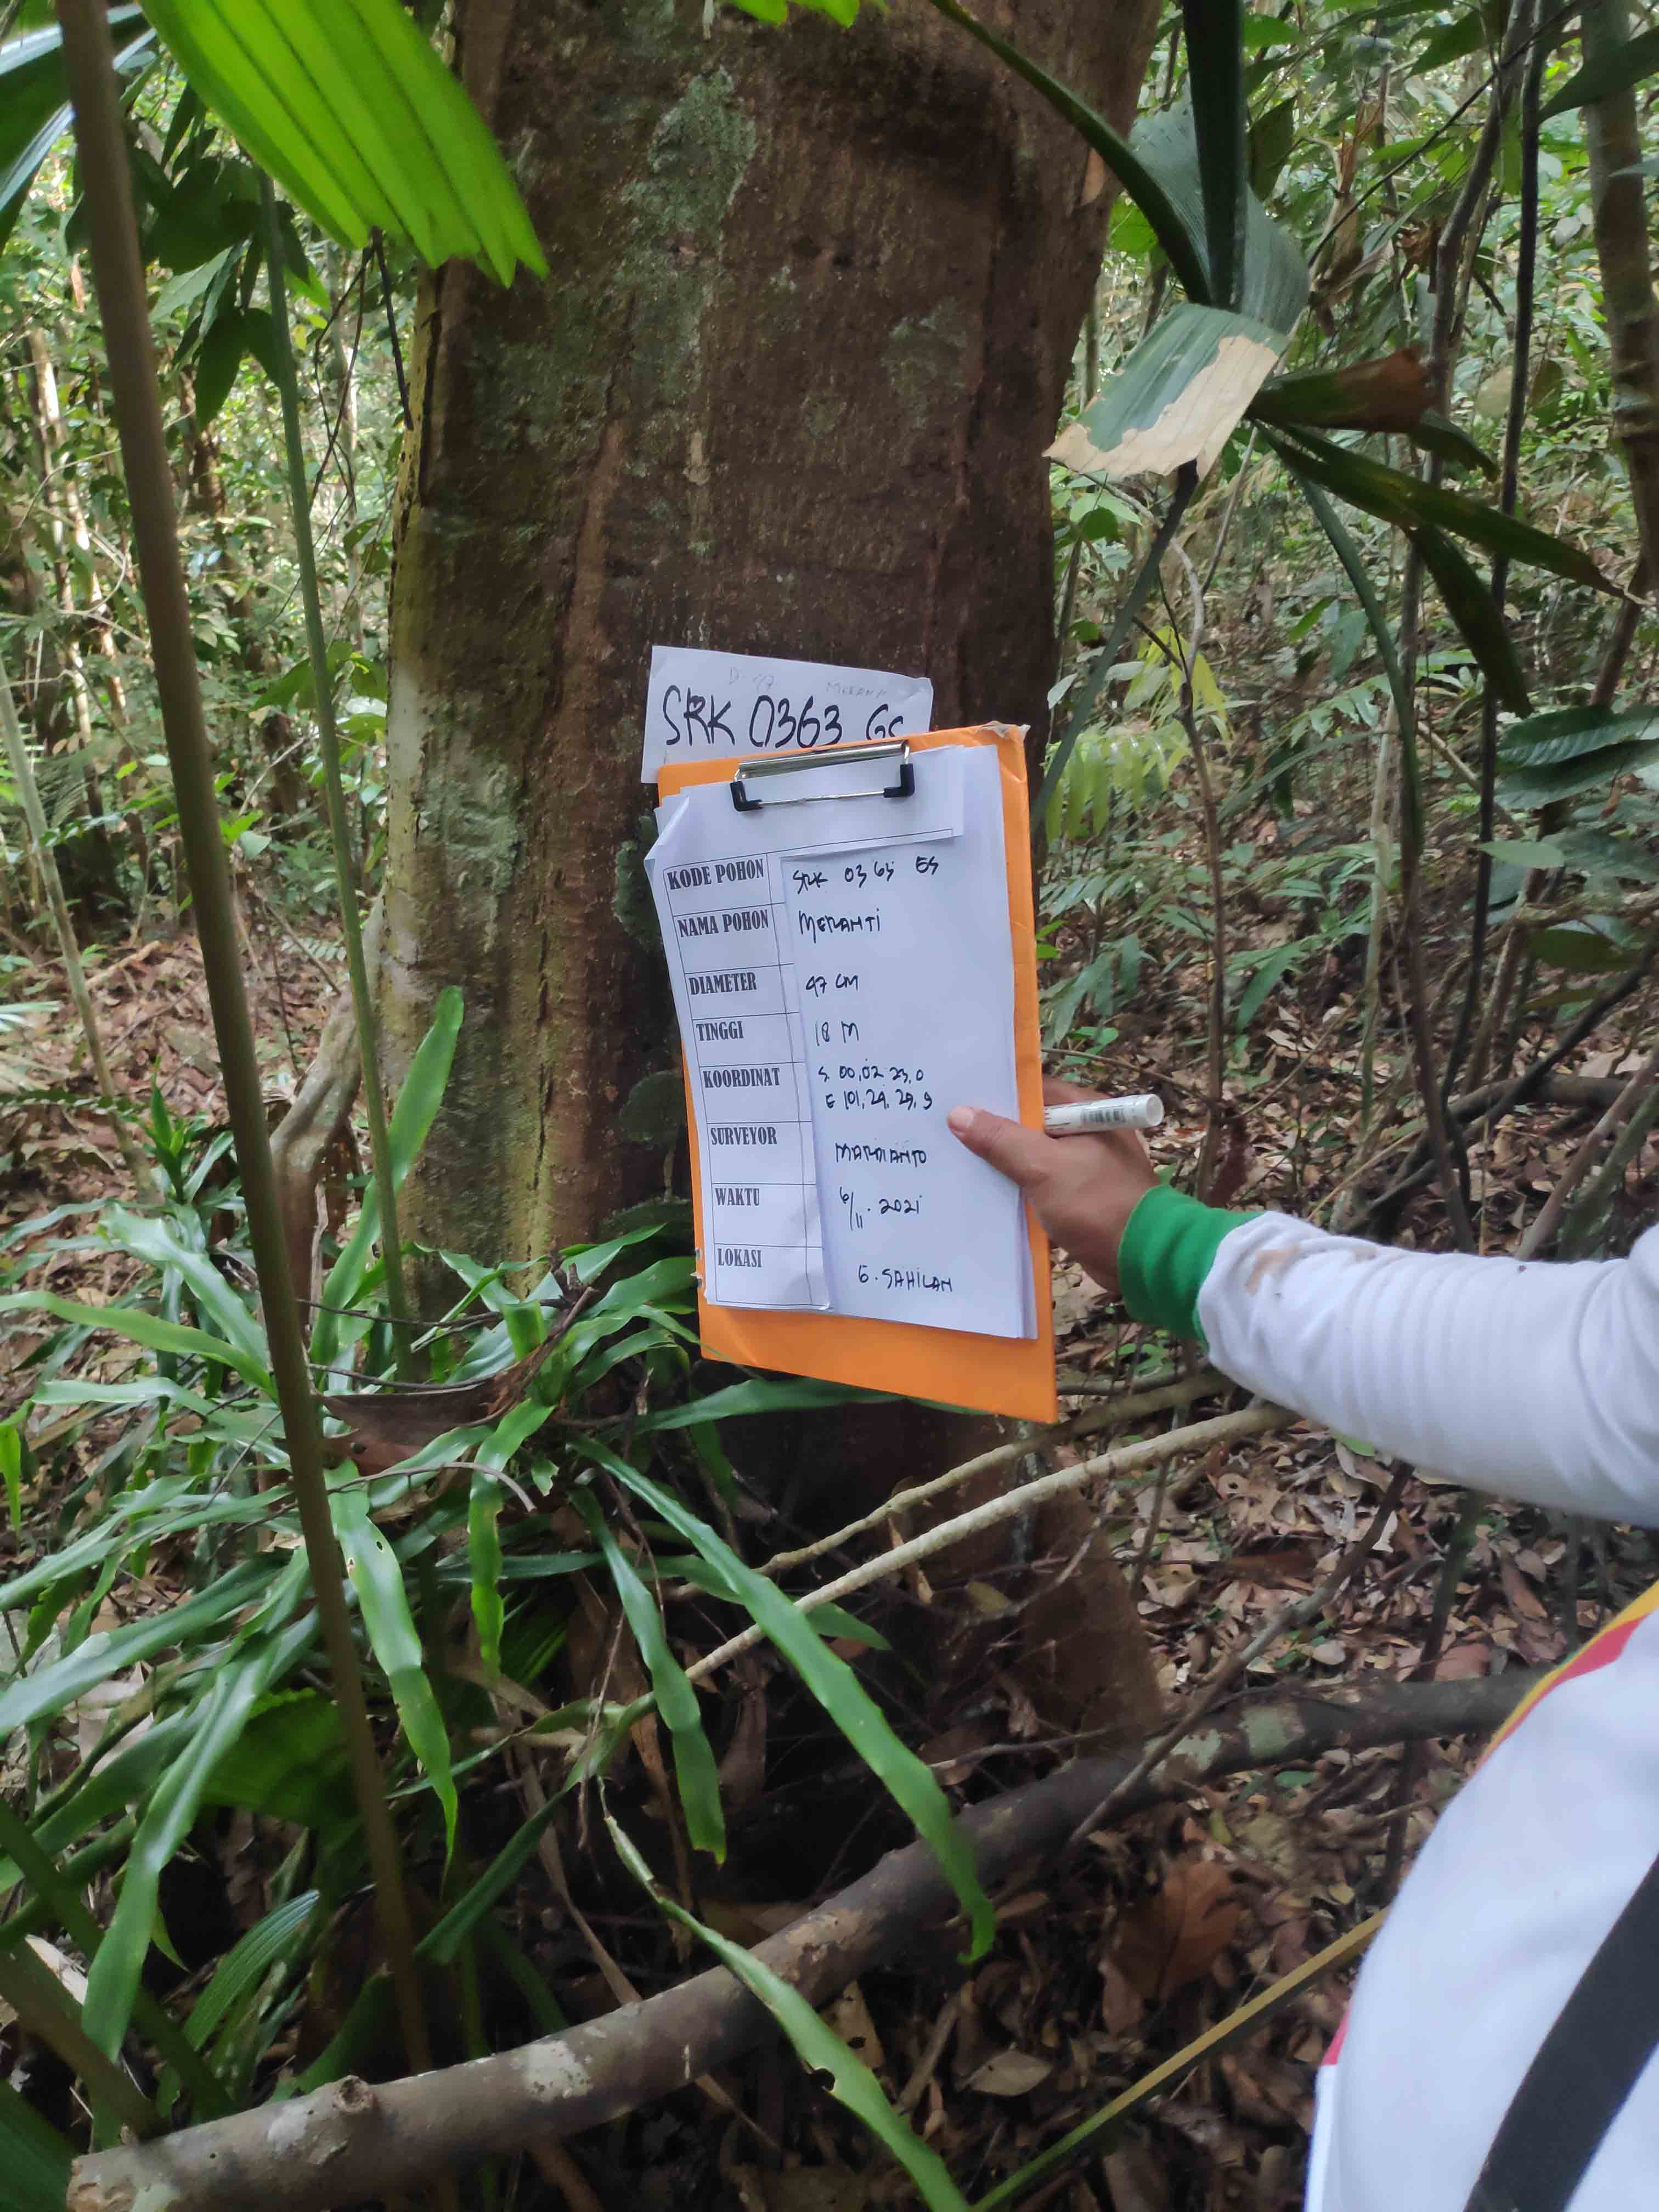 SRK 0363 GS
KODE POHON SRK 0363 ES
NAMA POHON MERANTI
DIAMETER 47 CM
TINGGI 18 M
KOORDINAT S 00,02 23,0
E 101,29,29,9
SURVEYOR MARDIANTO
WAKTU 6/11.2021
LOKASI G. SAHILAN